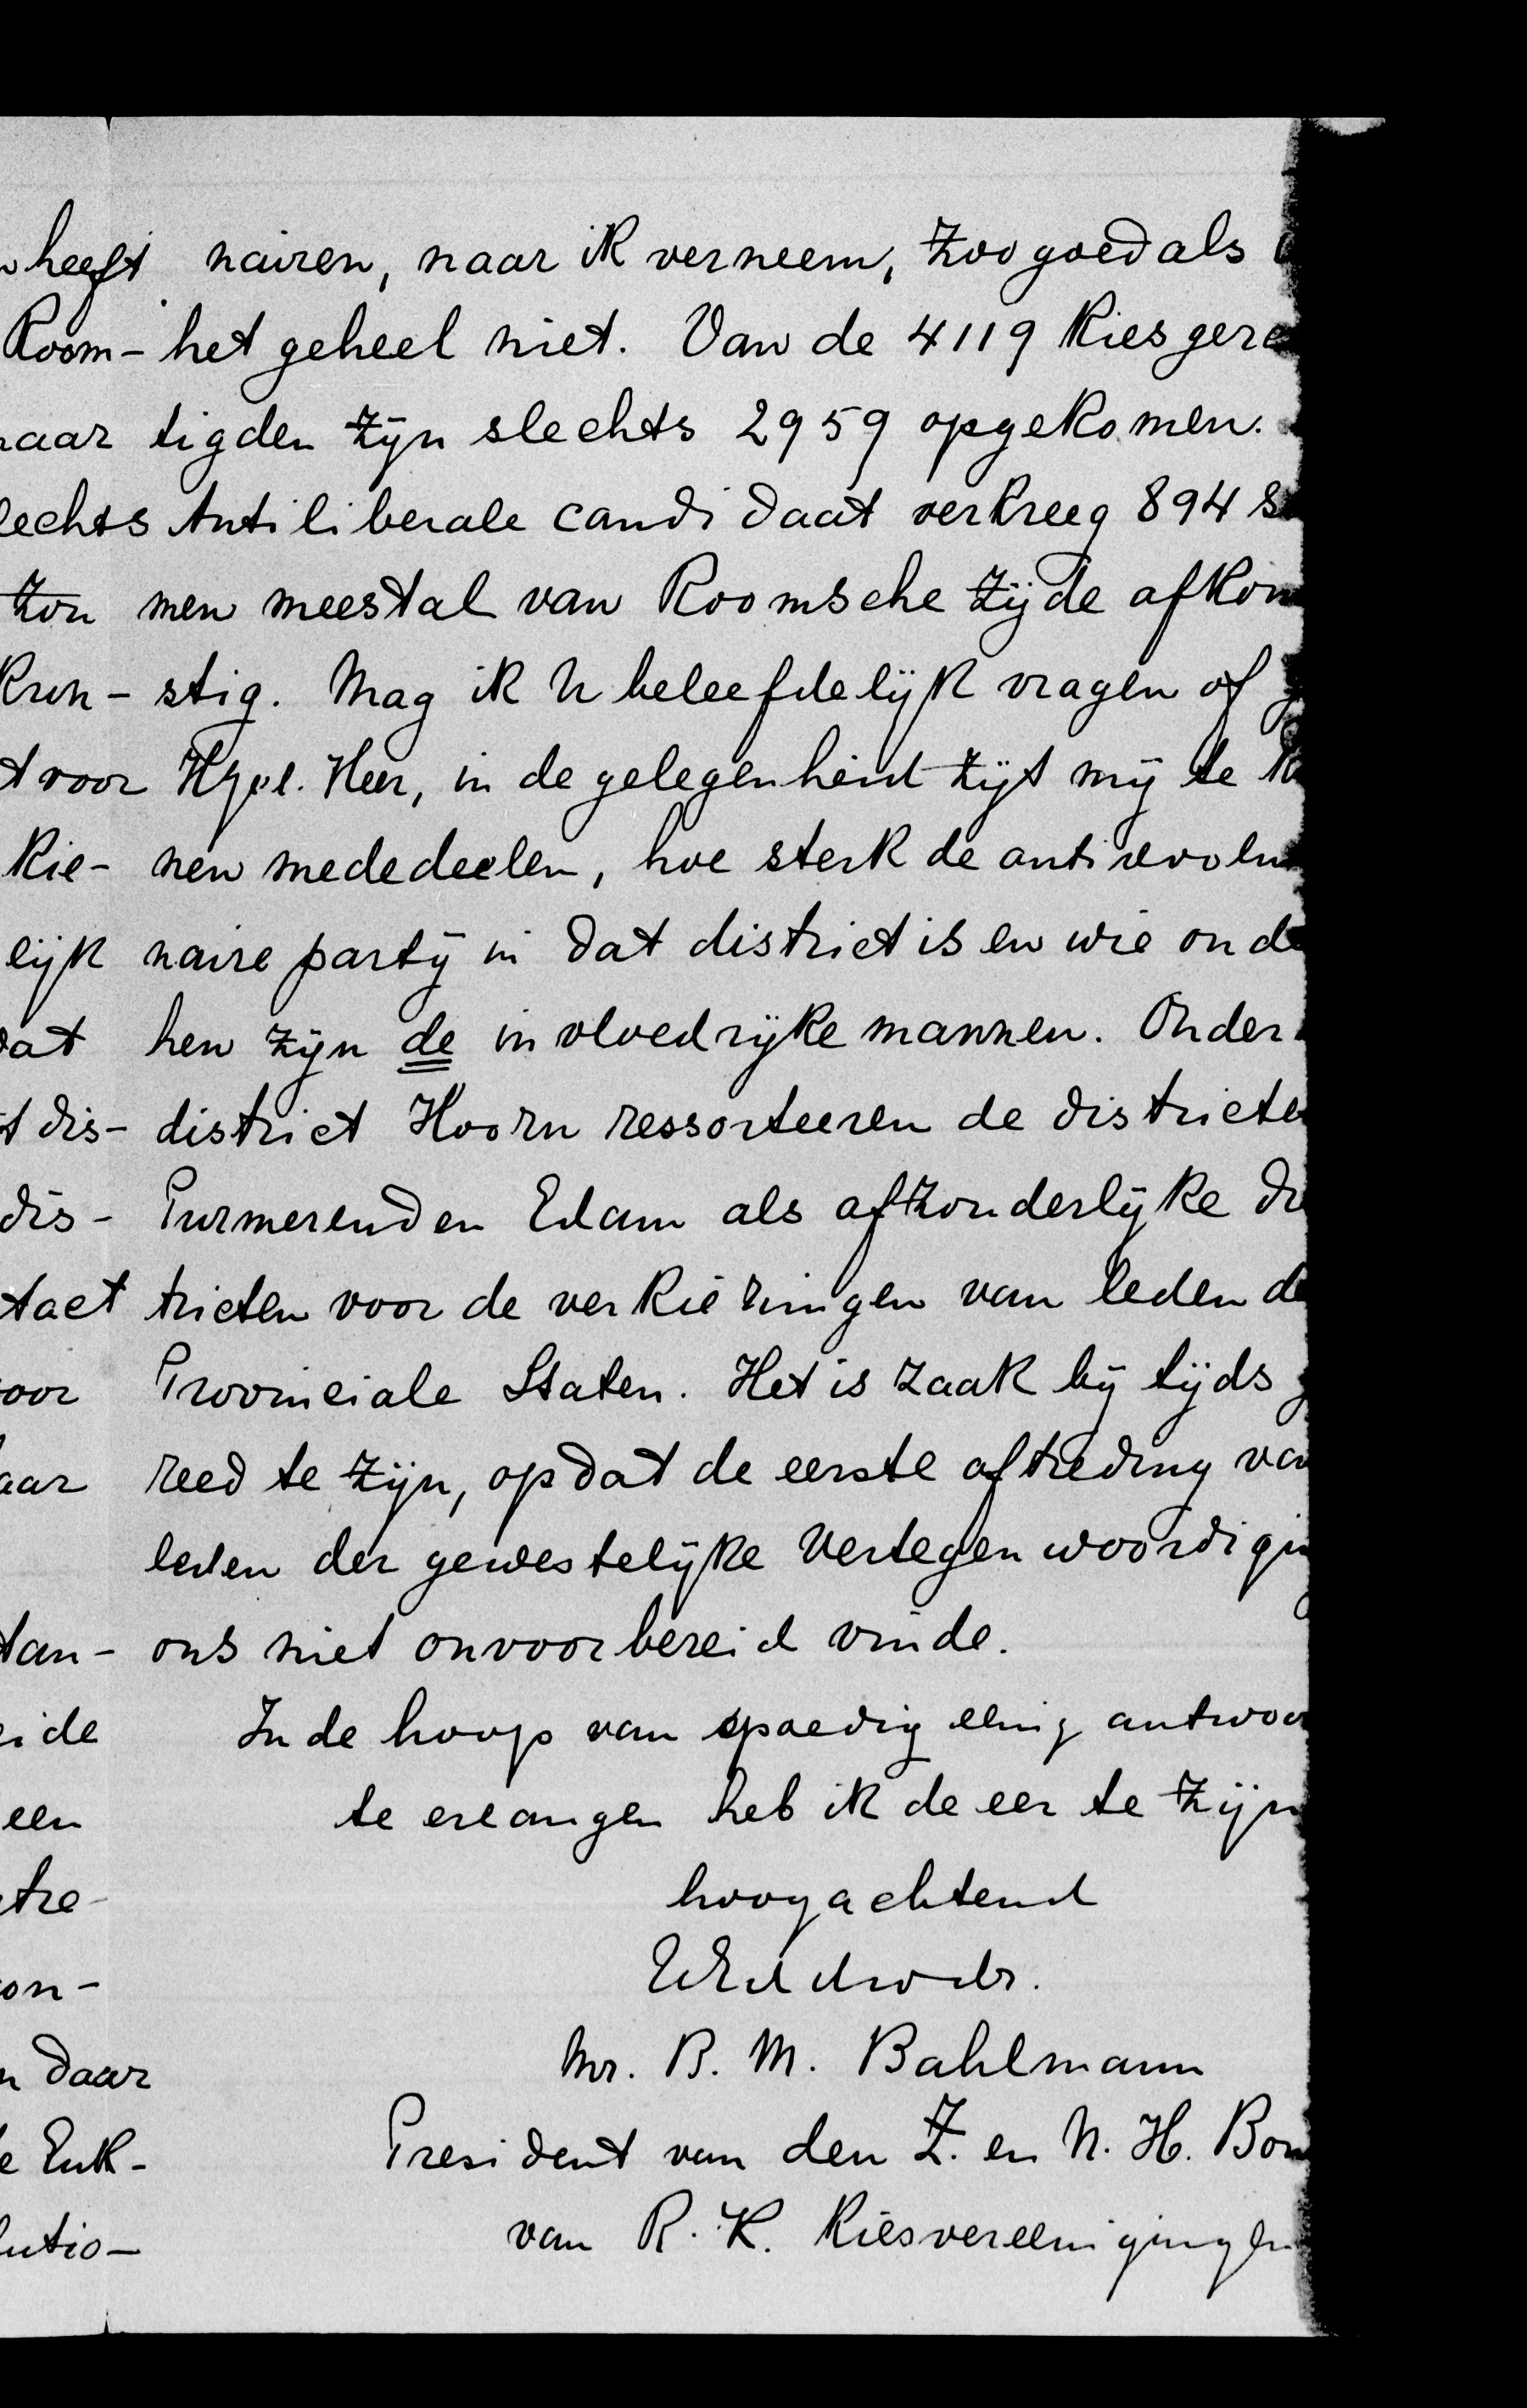 heeft
Room-
naar
lechts
zon
krin-
t voor
kie-
lijk
dat
t dis-
dis-
tact
oor
aar
tan-
eide
een
tre-
on-
n daar
e Enk-
lutio-
nairen, naar ik verneem, zoo goed als
het geheel niet. Van de 4119 kiesgere
tigden zijn slechts 2959 opgekomen.
Antiliberale candidaat verkreeg 894 s
men meestal van Roomsche zijde afkom
stig. Mag ik U beleefdelijk vragen of g
Hgel. Heer, in de gelegenheid zijt mij te k
nen mededeelen, hoe sterk de antirevolu
naire partij in dat district is en wie onde
hen zijn de invloedrijke mannen. Onder
district Hoorn ressorteeren de districte
Purmerend en Edam als afzonderlijke di
tricten voor de verkiezingen van leden de
Provinciale Staten. Het is zaak bij tijds g
reed te zijn, opdat de eerste aftreding van
leden der gewestelijke Vertegenwoordigin
ons niet onvoorbereid vinde.
In de hoop van spoedig eenig antwoor
te erlangen heb ik de eer te zijn
hoogachtend
UEd dwdr.
Mr. B. M. Bahlmann
President van den Z. en N. H. Bon
van R. K. Kiesvereenigingen